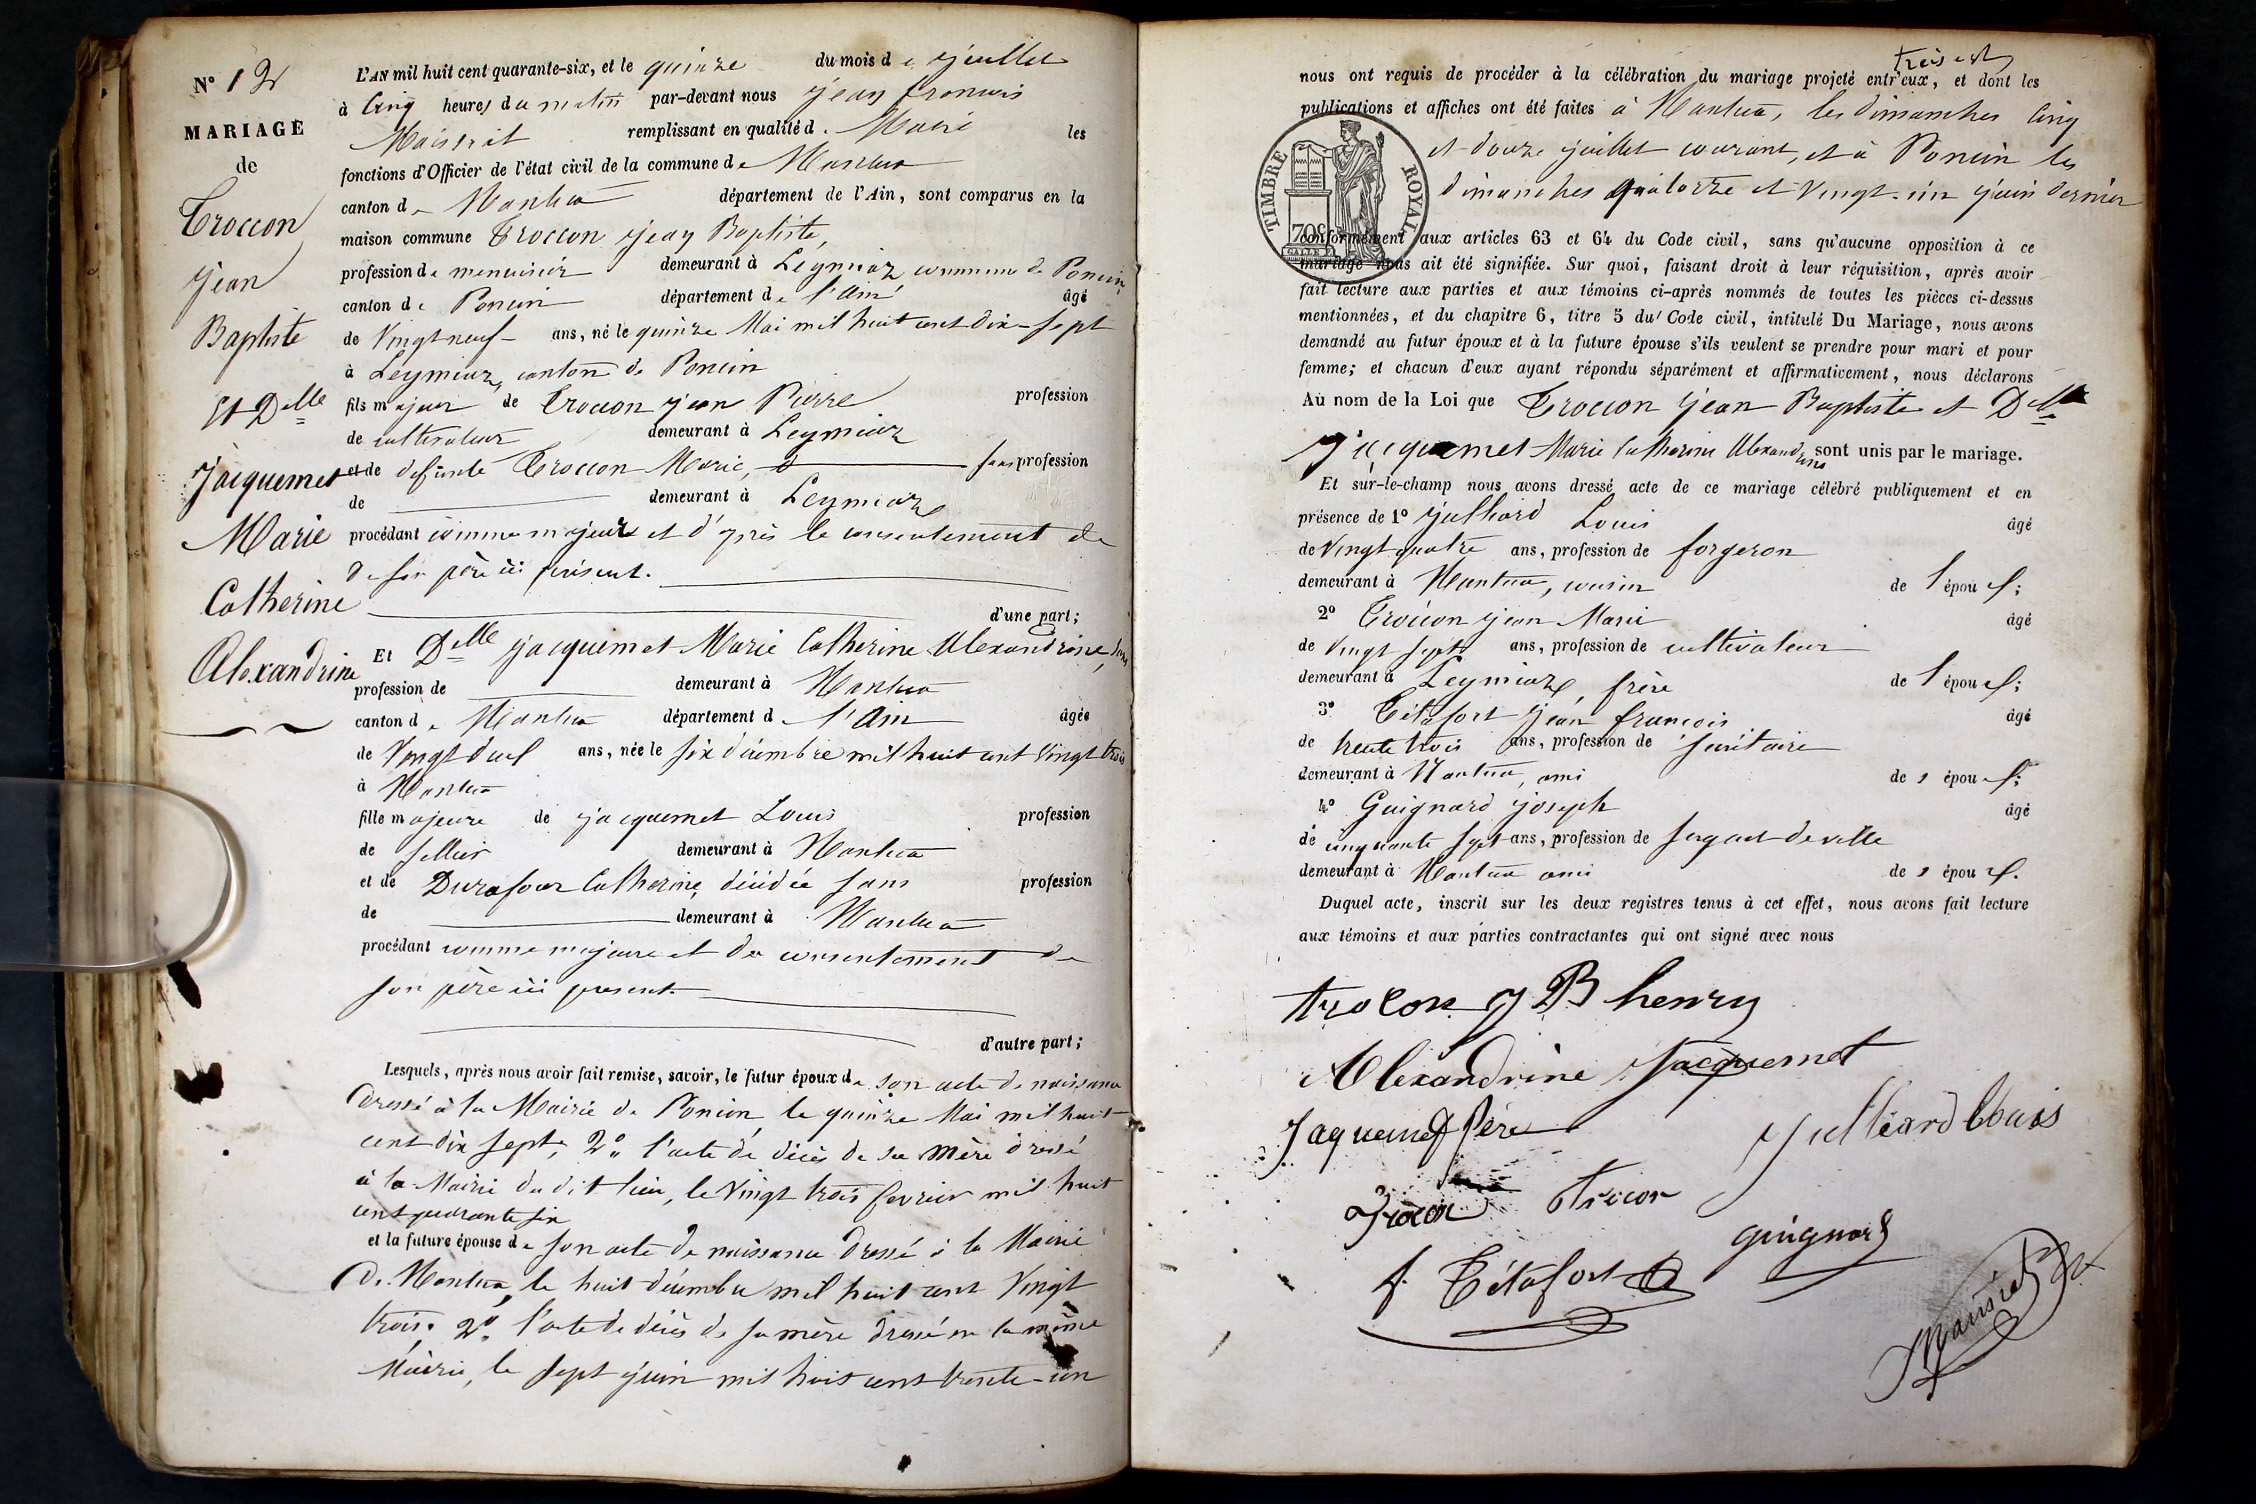 N° 12
MARIAGE
de
Troccon
Jean
Baptiste
Et Delle
Jacquemet
Marie
Catherine
Alexandrine
L'AN mil huit cent quarante-six, et le quinze du mois de juillet
à Cinq heures du matin par-devant nous Jean François
remplissant en qualité de Maire les
fonctions d'Officier de l'état civil de la commune de Nantua
canton de Nantua département de l'Ain, sont comparus en la
maison commune Troccon Jean Baptiste,
profession de menuisier demeurant à Leymiaz commune de Poncin,
canton de Poncin département de l'Ain âgé
de Vingt neuf ans, né le quinze Mai mil huit cent dix-sept
à Leymiaz, canton de Poncin
fils majeur de Troccon jean Pierre profession
de cultivateur demeurant à Leymiaz
et de defunte Troccon Marie, sans profession
de demeurant à Leymiaz
procédant comme majeur et d'après le consentement de
de son père ici présent.
d'une part;
Et Delle Jacquemet Marie Catherine Alexandrine, sans
profession de demeurant à Nantua
canton de Nantua département de l'Ain âgée
de Vingt deux ans, née le six décembre mil huit cent vingt trois
à Nantua
fille majeure de jacquemet Louis profession
de sellier demeurant à Nantua
et de Durafour Catherine, décédée sans profession
de demeurant à Nantua
procédant comme majeure et du consentement de
son père ici present.
d'autre part;
Lesquels, après nous avoir fait remise, savoir, le futur époux de son acte de naissance
dressé à la Mairie de Poncin, le quinze Mai mil huit
cent dix sept, 2° l'acte de décès de sa mère dressé
à la Mairie du dit lieu, le Vingt trois fevrier mil huit
cent quarante six
et la future épouse de son acte de naissance dressé à la Mairie
de Nantua, le huit décembre mil huit cent Vingt
trois. 2° l'acte de décès de sa mère dressé en la même
Mairie, le sept juin mil huit cent trente-un
nous ont requis de procéder à la célébration du mariage projeté entr'eux, et dont les
publications et affiches ont été faites à Nantua, les dimanches Cinq
et douze juillet courant, et à Poncin les
dimanches quatorze et Vingt-un juin dernier
TIMBRE ROYAL
70c
conformément aux articles 63 et 64 du Code civil, sans qu'aucune opposition à ce
mariage nous ait été signifiée. Sur quoi, faisant droit à leur réquisition, après avoir
fait lecture aux parties et aux témoins ci-après nommés de toutes les pièces ci-dessus
mentionnées, et du chapitre 6, titre 5 du Code civil, intitulé Du Mariage, nous avons
demandé au futur époux et à la future épouse s'ils veulent se prendre pour mari et pour
femme; et chacun d'eux ayant répondu séparément et affirmativement, nous déclarons
Au nom de la Loi que Troccon Jean Baptiste et Delle
Jacquemet Marie Catherine Alexandrine sont unis par le mariage.
Et sur-le-champ nous avons dressé acte de ce mariage célébré publiquement et en
présence de 1° Julliard Louis âgé
de Vingt quatre ans, profession de forgeron
demeurant à Nantua, cousin de l'époux;
2° Troccon Jean Marie âgé
de Vingt sept ans, profession de cultivateur
demeurant à Leymiaz, frère de l'époux;
3° Tétafort Jean François âgé
de trente trois ans, profession de secrétaire
demeurant à Nantua, ami des époux;
4° Guignard Joseph âgé
de cinquante sept ans, profession de sergent de ville
demeurant à Nantua ami des époux.
Duquel acte, inscrit sur les deux registres tenus à cet effet, nous avons fait lecture
aux témoins et aux parties contractantes qui ont signé avec nous
trocon J B henry
Alexandrine Jacquemet
Jaquemet Père
Julliard Louis
Trocon
Trocon
guignard
f. Tétafort